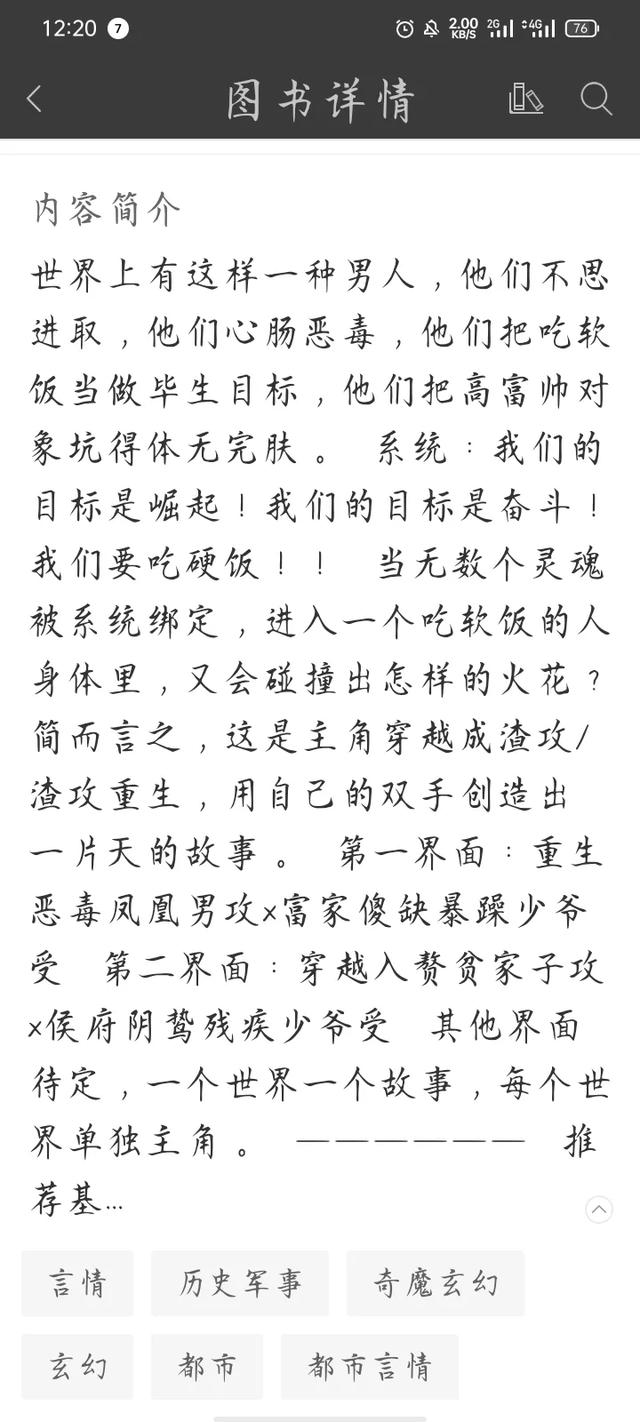 12:20 7 2.00 KB/S 2G 4G 76
图书详情
内容简介
世界上有这样一种男人，他们不思
进取，他们心肠恶毒，他们把吃软
饭当做毕生目标，他们把高富帅对
象坑得体无完肤。 系统：我们的
目标是崛起！我们的目标是奋斗！
我们要吃硬饭！！ 当无数个灵魂
被系统绑定，进入一个吃软饭的人
身体里，又会碰撞出怎样的火花？
简而言之，这是主角穿越成渣攻/
渣攻重生，用自己的双手创造出
一片天的故事。 第一界面：重生
恶毒凤凰男攻x富家傻缺暴躁少爷
受 第二界面：穿越入赘贫家子攻
x侯府阴鸷残疾少爷受 其他界面
待定，一个世界一个故事，每个世
界单独主角。 —————— 推
荐基...
言情 历史军事 奇魔玄幻
玄幻 都市 都市言情